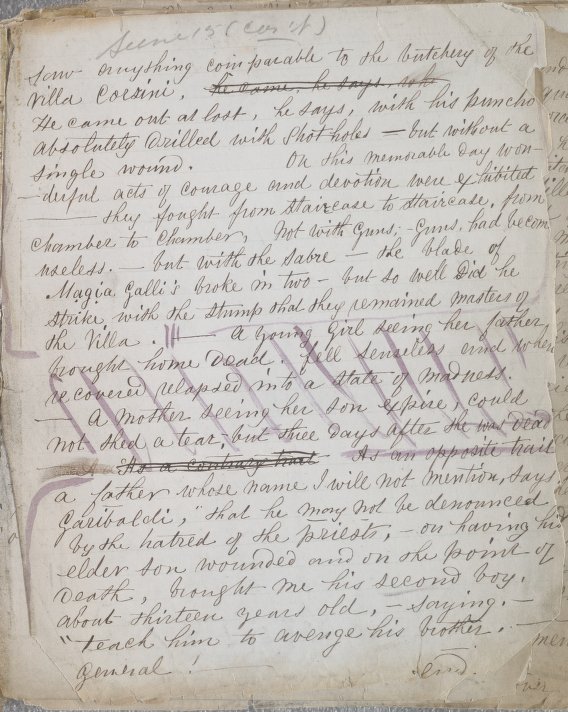 June 15 (con't)
saw anything comparable to the butchery of the
Villa Corsini, he came, he says, with
He came out at last, he says, with his puncho
absolutely drilled with shot holes — but without a
single wound. On this memorable day won-
-derful acts of courage and devotion were exhibited
— they fought from staircase to staircase, from
chamber to chamber, not with guns, — guns, had becom
useless. — but with the sabre — the blade of
Magia Galli's broke in two — but so well did he
strike with the stump that they remained masters of
the Villa." — A young girl seeing her father
brought home dead. fell senseless and when
recovered relapsed into a state of madness.
— A mother seeing her son expire, could
not shed a tear, but three days after she was dead
As a contrary trait As an opposite trait
a father whose name I will not mention, says
Garibaldi, "that he may not be denounced
by the hatred of the priests, — on having his
elder son wounded and on the point of
death, brought me his second boy.
about thirteen years old, — saying. —
"teach him to avenge his brother. —
General! — end.
over